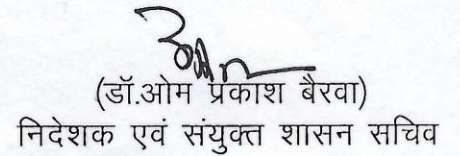 (डॉ.ओम प्रकाश बैरवा)
निदेशक एवं संयुक्त शासन सचिव